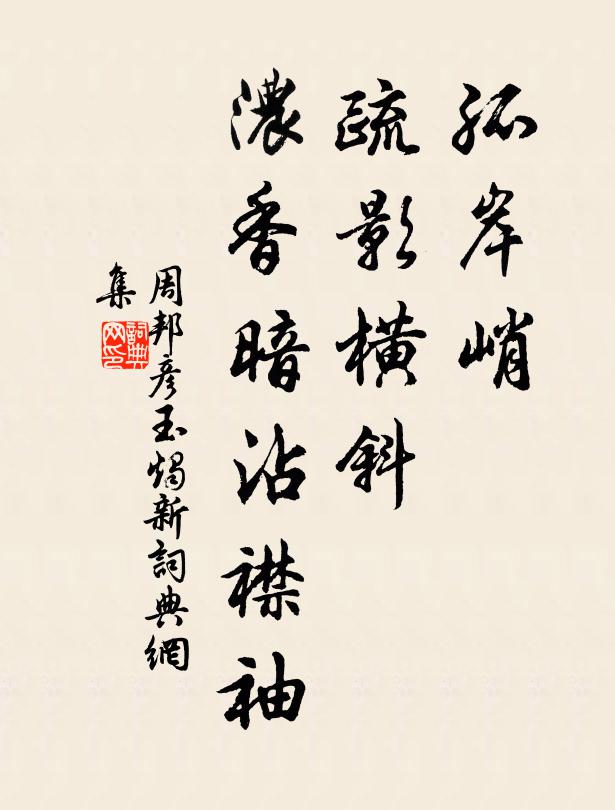 孤岸峭
疏影橫斜
濃香暗沾襟袖
周邦彥玉燭新詞典網
集
詞典
网印